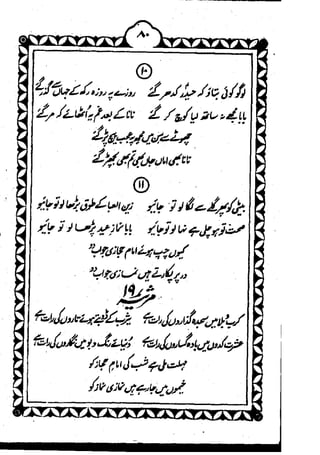 ۸۰
۱۰
لوگو کوئی بتاؤ کہ حیدرؑ کدھر گئے روزے پہ روزہ رکھ کے جہاں سے گذر گئے
بابا مجھے نہ ساتھ لیا کوچ کر گئے نانا کے بعد غم یہ اٹھائے کہ مر گئے
چھوٹے سے سن میں مجھ پہ عجب پیچ پڑ گئے
نانا بھی اماں جاں بھی تم بھی بچھڑ گئے
۱۱
بیٹی کو پھر گلے سے لگا لو تو جائیو زین العبا کے طوق بڑھا لو تو جائیو
صحت تو ہو چلی ہے نہا لو تو جائیو بابا نماز عید پڑھا لو تو جائیو
کیوں چپ ہوئے امام حجازی جواب دو
در پر پکارتے ہیں نمازی جواب دو
مرثیہ ۱۹
کرب و بلا میں سجدہ گذاروں کی رات ہے یثرب کے ڈوبتے ہوئے تاروں کی رات ہے
عشرت کدوں میں بادہ گساروں کی رات ہے دنیائے رنگ و بو میں نگاروں کی رات ہے
مہلت ملی ہے شب کی امام حجاز کو
خیموں میں جا رہے ہیں نمازی نماز کو